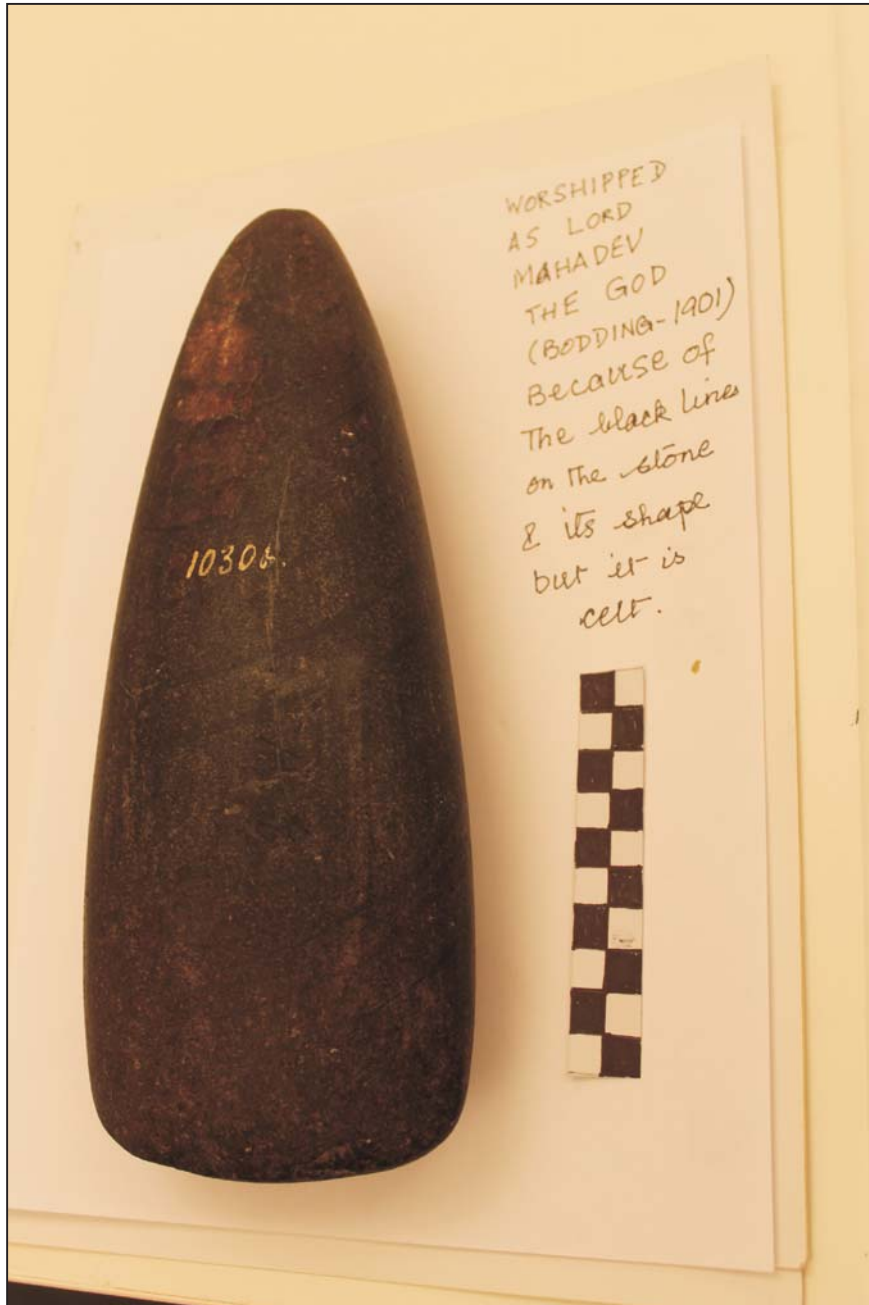 WORSHIPPED
AS LORD
MAHADEV
THE GOD
(BODDING-1901)
Because of
The black lines
on the stone
& its shape
but it is
celt.